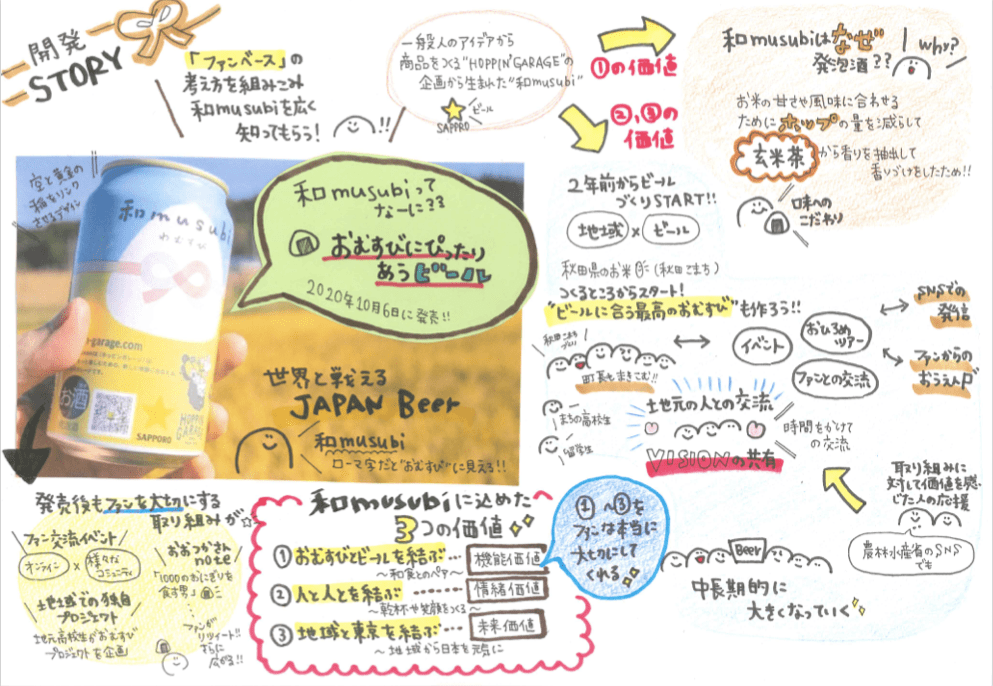 開発
STORY
「ファンベース」の
考え方を組みこみ
和musubiを広く
知ってもらう！
!!
一般人のアイデアから
商品をつくる"HOPPIN'GARAGE"の
企画から生まれた"和musubi"
ビール
SAPPORO
①の価値
②,③の
価値
和musubiはなぜ
発泡酒??
Why?
お米の甘さや風味に合わせる
ためにホップの量を減らして
玄米茶から香りを抽出して
香りづけをしたため!!
味への
こだわり
空と黄金の
稲をリンク
させるデザイン
和musubi
わむすび
-garage.com
お酒
SAPPORO
HOPPIN'
GARAGE
和musubiって
なーに??
おむすびにぴったり
あうビール
2020年10月6日に発売!!
世界と戦える
JAPAN Beer
和musubi
ローマ字だと"おむすび"に見える!!
2年前からビール
づくりSTART!!
地域×ビール
秋田県のお米(秋田こまち)
つくるところからスタート!
"ビールに合う最高のおむすび"も作ろう!!
秋田こまち
町長もまきこむ!!
まちの高校生
留学生
イベント
おひろめ
ツアー
ファンとの交流
SNSでの
発信
ファンからの
おうえんP
土地元の人との交流
時間をかけて
の交流
VISIONの共有
取り組みに
対して価値を感
じた人の応援
農林水産省のSNS
でも
Beer
中長期的に
大きくなっていく
発売後もファンを大切にする
取り組みが☆
ファン交流イベント
オンライン×様々な
コミュニティ
土地域での独自
プロジェクト
地元高校生がおむすび
プロジェクトを企画
おおつかさん
note
「1000のおにぎりを
食す男」
ファンが
リツイート!!
さらに
広がる!!
和musubiに込めた
3つの価値
①おむすびとビールを結ぶ…機能価値
～和食とのペア～
②人と人とを結ぶ……情緒価値
～乾杯や笑顔をつくる～
③地域と東京を結ぶ…未来価値
～地域から日本を元気に
①～③を
ファンは本当に
大切にして
くれる